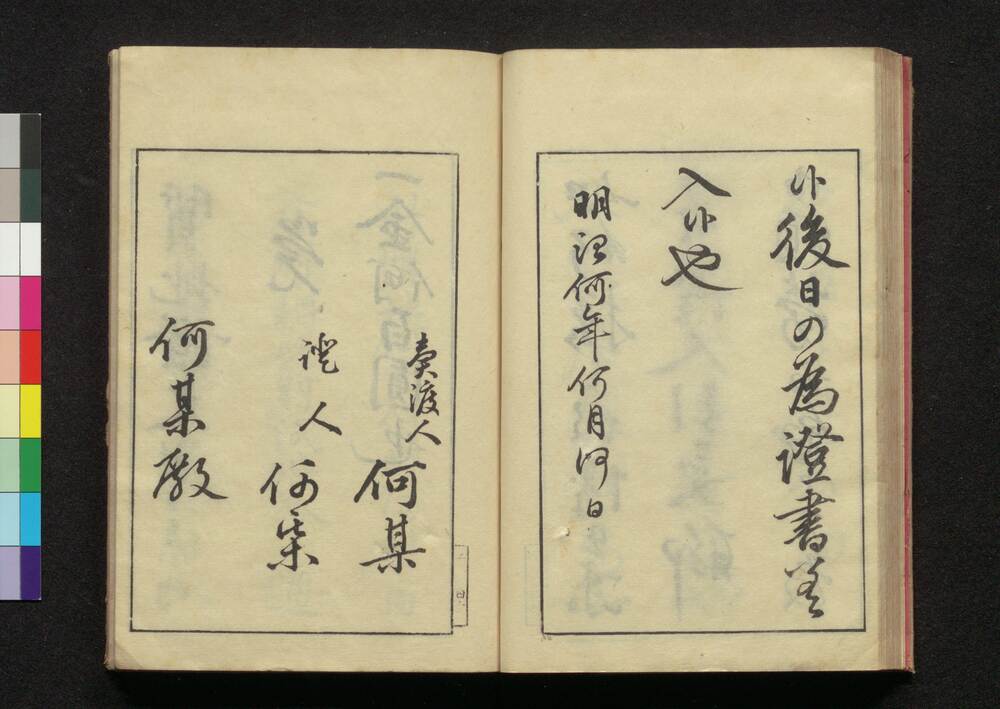 候後日の為證書差
入候也
明治何年何月何日
賣渡人
何某
證人
何某
何某殿